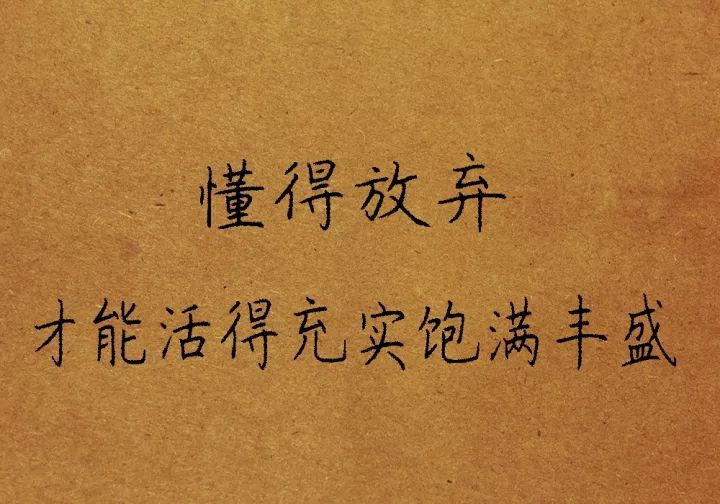 懂得放弃
才能活得充实饱满丰盛